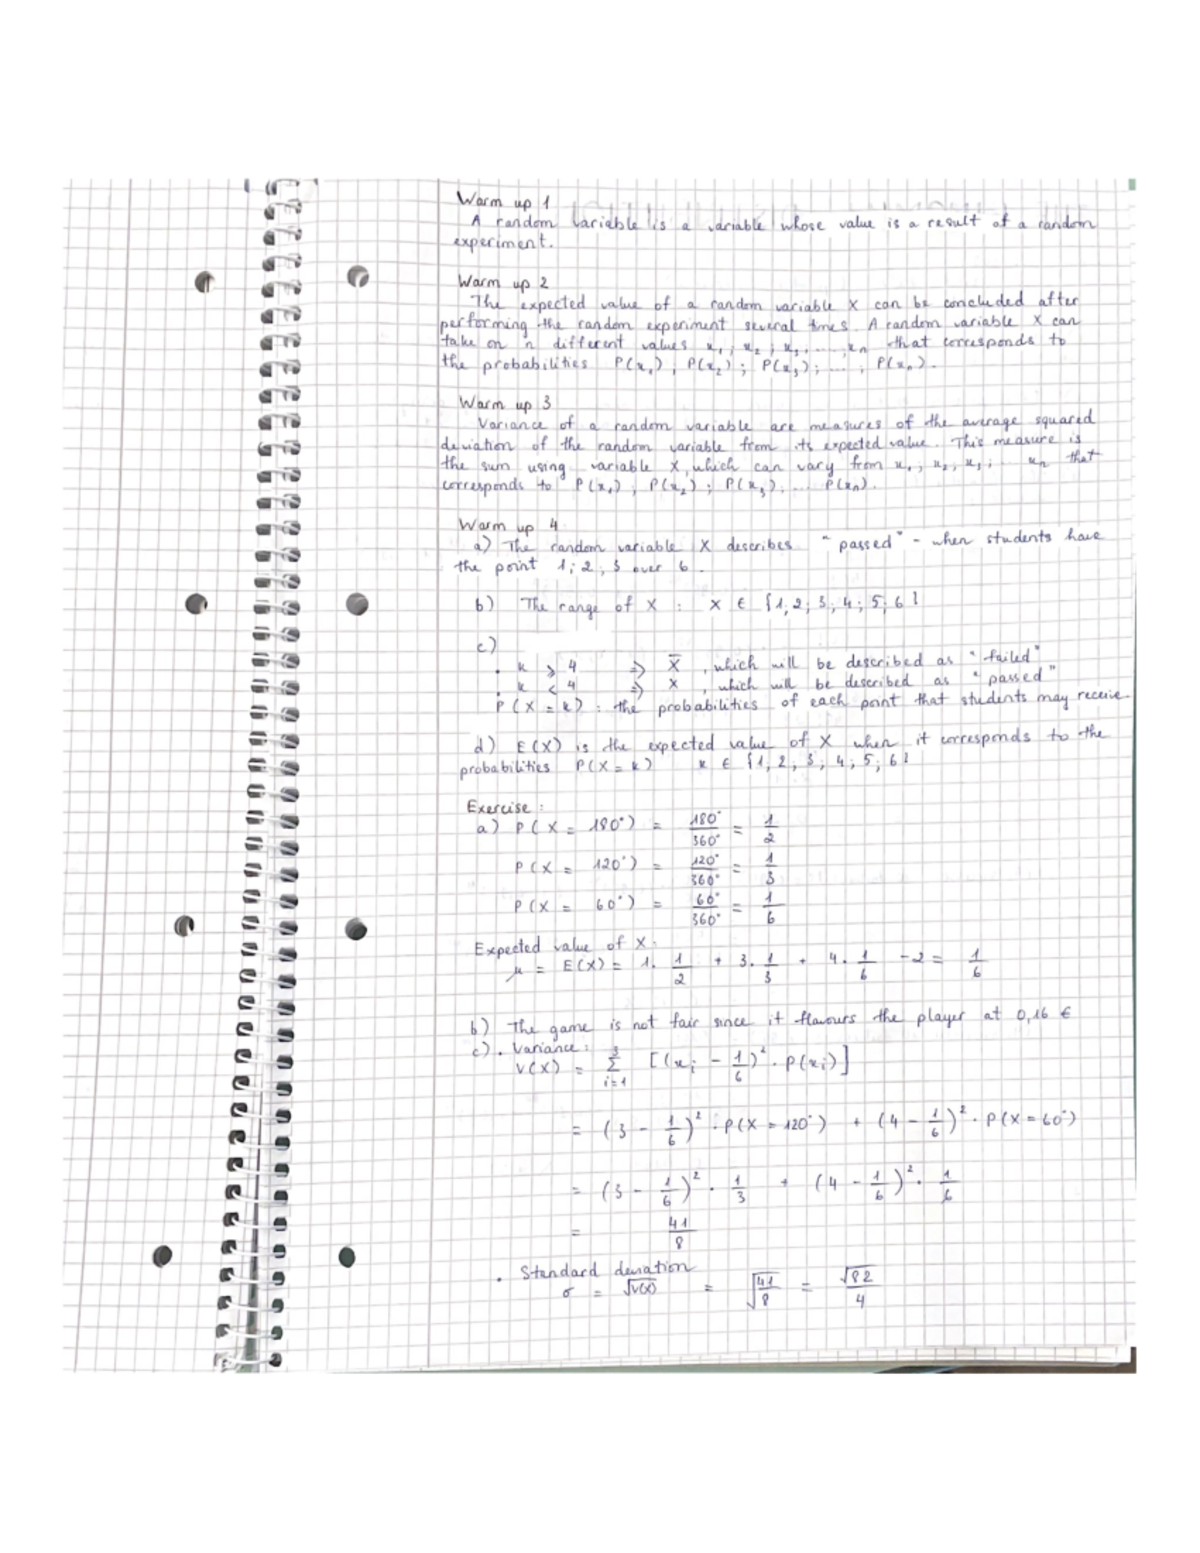 Warm up 1
A random variable is a variable whose value is a result of a random
experiment.
Warm up 2
The expected value of a random variable X can be concluded after
performing the random experiment several times. A random variable X can
take on n different values x₁ ; x₂ ; x₃, ...., xn that corresponds to
the probabilities P(x₁) ; P(x₂) ; P(x₃) ; ... ; P(xn).
Warm up 3
Variance of a random variable are measures of the average squared
deviation of the random variable from its expected value. This measure is
the sum using variable X, which can vary from x₁ ; x₂ ; x₃ ; ... xn that
corresponds to P(x₁) ; P(x₂) ; P(x₃), ... P(xn).
Warm up 4
a) The random variable X describes "passed" - when students have
the point 1; 2; 3 over 6.
b) The range of X : X ∈ {1; 2; 3; 4; 5; 6}
c)
• k ⩾ 4 => X̅, which will be described as "failed"
• k < 4 => X, which will be described as "passed"
P(X = k) : the probabilities of each point that students may receive.
d) E(X) is the expected value of X when it corresponds to the
probabilities P(X = k) k ∈ {1; 2; 3; 4; 5; 6}
Exercise :
a) P(X = 180°) = 180°/360° = 1/2
P(X = 120°) = 120°/360° = 1/3
P(X = 60°) = 60°/360° = 1/6
Expected value of X :
μ = E(X) = 1. 1/2 + 3. 1/3 + 4. 1/6 - 2 = 1/6
b) The game is not fair since it flavours the player at 0,16 €
c). Variance :
V(X) = Σ³ᵢ₌₁ [(xᵢ - 1/6)² . P(xᵢ)]
= (3 - 1/6)² . P(X = 120°) + (4 - 1/6)² . P(X = 60°)
= (3 - 1/6)² . 1/3 + (4 - 1/6)² . 1/6
= 41/8
. Standard deviation
σ = √V(X) = √41/8 = √82/4